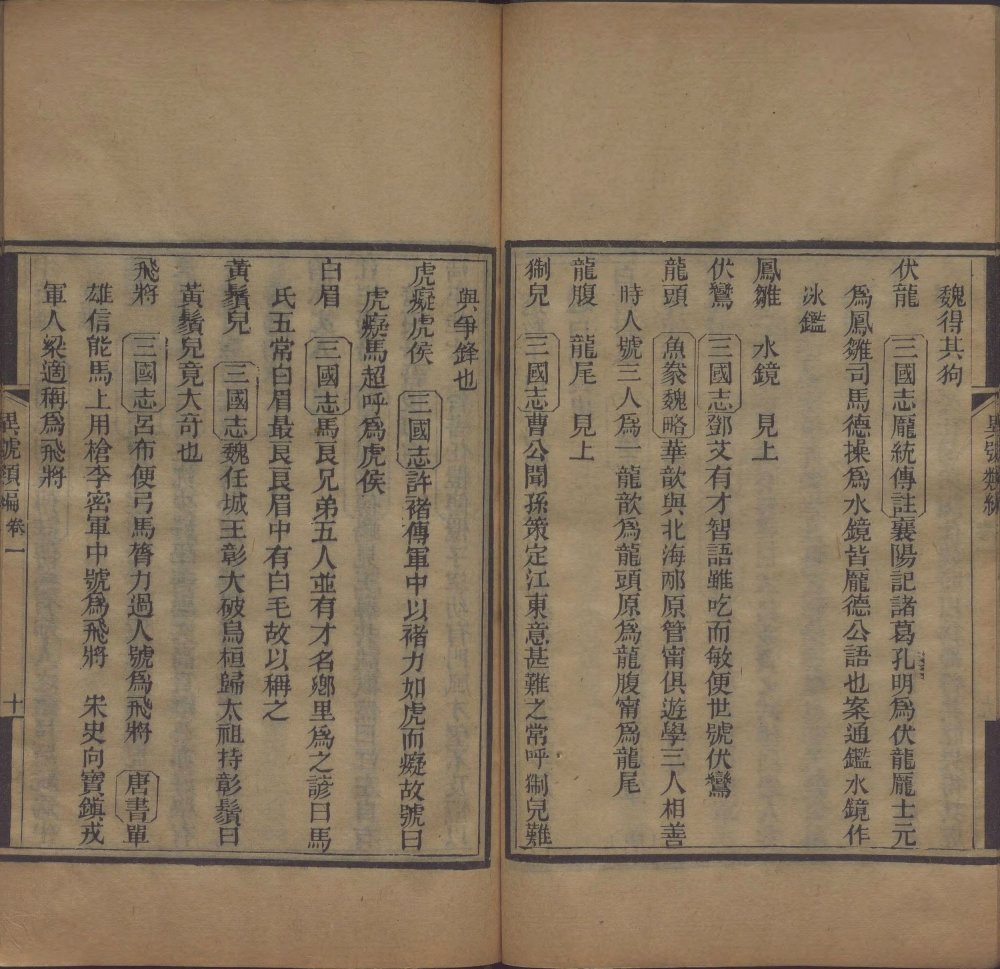 魏得其狗
伏龍　三國志龐統傳註襄陽記諸葛孔明爲伏龍龐士元
爲鳳雛司馬德操爲水鏡皆龐德公語也案通鑑水鏡作
冰鑑
鳳雛　水鏡　見上
伏鸞　三國志鄧艾有才智語雖吃而敏便世號伏鸞
龍頭　魚豢魏略華歆與北海邴原管甯俱遊學三人相善
時人號三人爲一龍歆爲龍頭原爲龍腹甯爲龍尾
龍腹　龍尾　見上
猘兒　三國志曹公聞孫策定江東意甚難之常呼猘兒難
與爭鋒也
虎癡虎侯　三國志許褚傳軍中以褚力如虎而癡故號曰
虎癡馬超呼爲虎侯
白眉　三國志馬良兄弟五人並有才名鄉里爲之諺曰馬
氏五常白眉最良良眉中有白毛故以稱之
黃鬚兒　三國志魏任城王彰大破烏桓歸太祖持彰鬚曰
黃鬚兒竟大奇也
飛將　三國志呂布便弓馬膂力過人號爲飛將　唐書單
雄信能馬上用槍李密軍中號爲飛將　宋史向寶鎮戎
軍人梁適稱爲飛將
異號類編卷一
十